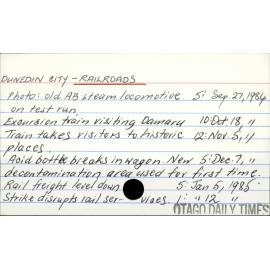 DUNEDIN CITY - RAILROADS
Photo: old AB steam locomotive 5: Sep 27, 1984
on test run
Excursion train visiting Oamaru 10: Oct 18, "
Train takes visitors to historic 12: Nov 5, "
places.
Acid bottle breaks in wagon. New 5: Dec 7, "
decontamination area used for first time.
Rail freight level down 5: Jan 5, 1985
Strike disrupts rail services 1: " 12 "
OTAGO DAILY TIMES